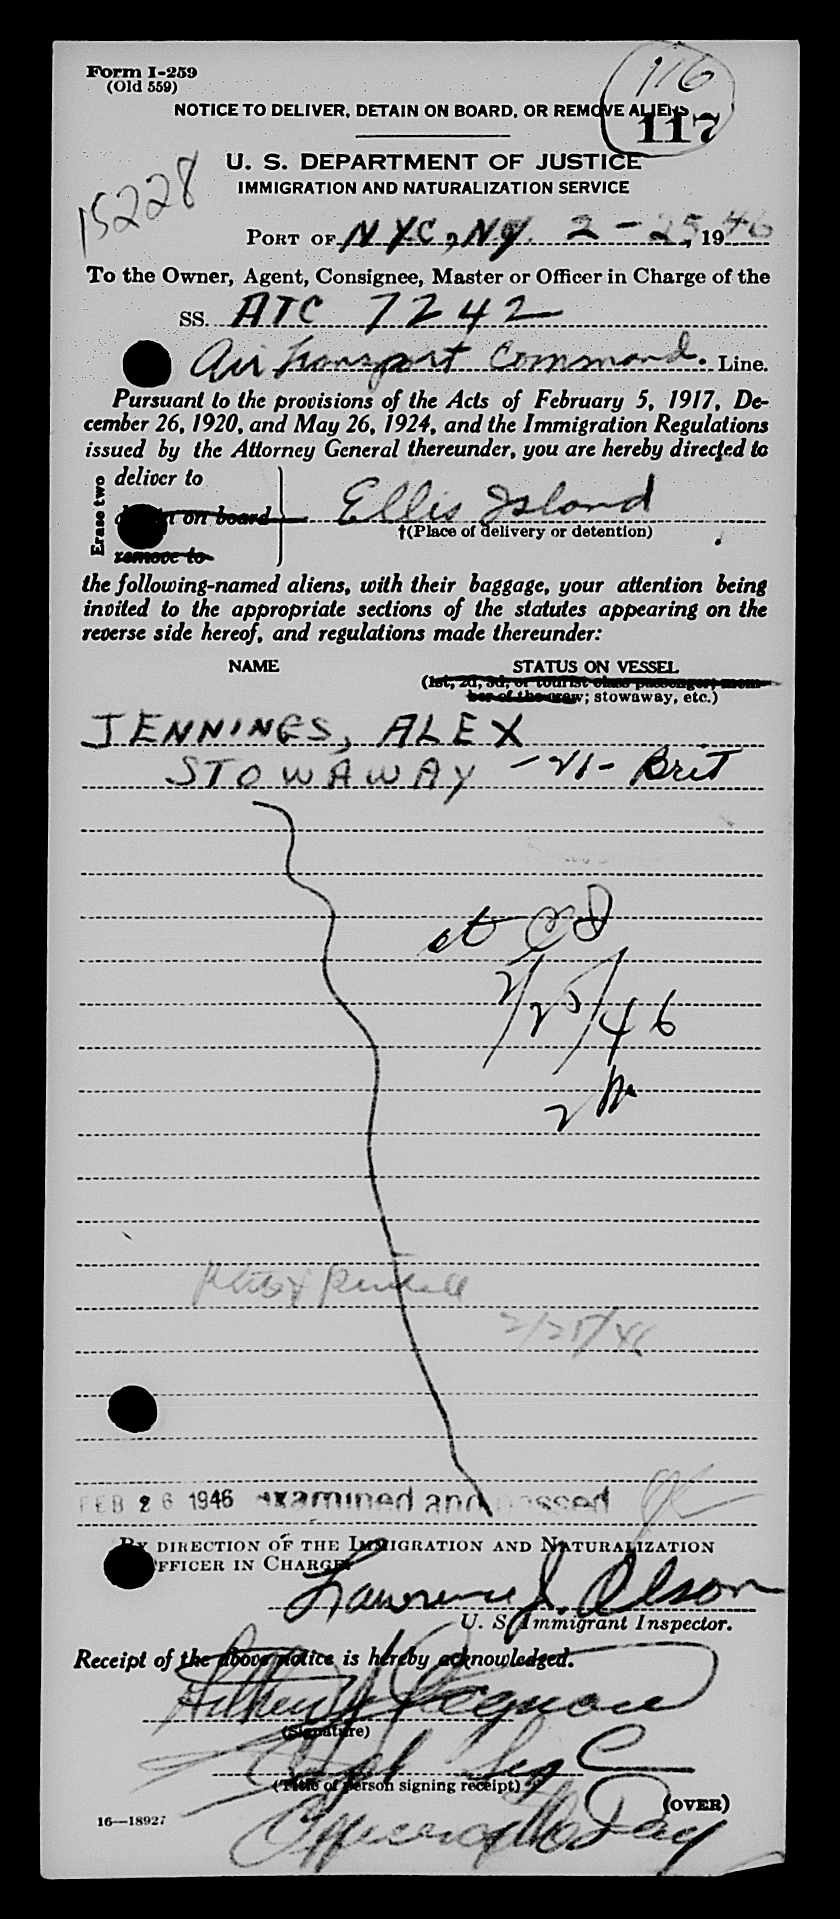 Form I-259
(Old 559)
116
NOTICE TO DELIVER, DETAIN ON BOARD, OR REMOVE ALIENS
117
U. S. DEPARTMENT OF JUSTICE
IMMIGRATION AND NATURALIZATION SERVICE
15228
PORT OF NYC, NY. 2-25, 1946
To the Owner, Agent, Consignee, Master or Officer in Charge of the
SS. ATC 7242
Air Transport Command. Line.
Pursuant to the provisions of the Acts of February 5, 1917, De-
cember 26, 1920, and May 26, 1924, and the Immigration Regulations
issued by the Attorney General thereunder, you are hereby directed to
Erase two
deliver to
on board
Ellis Island
†(Place of delivery or detention)
remove to
the following-named aliens, with their baggage, your attention being
invited to the appropriate sections of the statutes appearing on the
reverse side hereof, and regulations made thereunder:
NAME STATUS ON VESSEL
(1st, 2d, 3d, or tourist class passenger, mem-
ber of the crew; stowaway, etc.)
JENNINGS, ALEX
STOWAWAY - 21 - Brit
2/25/46
2/25/46
FEB 26 1946 examined and passed
BY DIRECTION OF THE IMMIGRATION AND NATURALIZATION
OFFICER IN CHARGE
Lawrence J. Olson
U. S. Immigrant Inspector.
Receipt of the above notice is hereby acknowledged.
(Signature)
(Title of person signing receipt)
(OVER)
16—18927
Officer of the Day